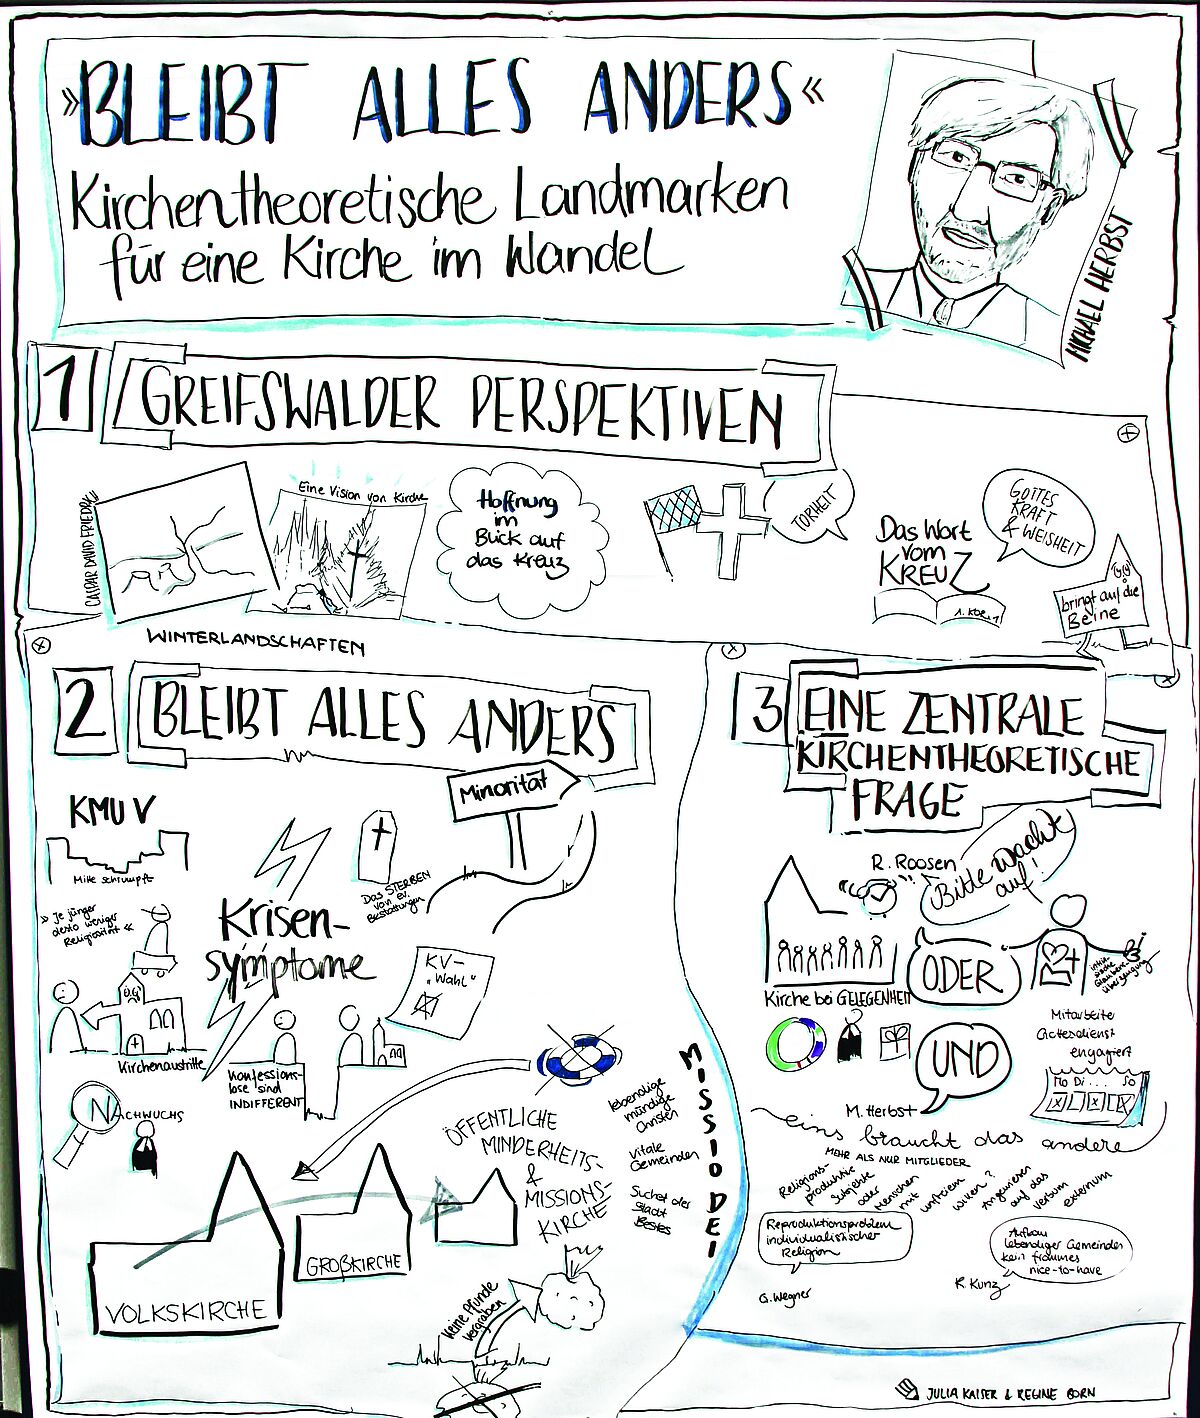 »BLEIBT ALLES ANDERS«
Kirchentheoretische Landmarken
für eine Kirche im Wandel
MICHAEL HERBST
1 GREIFSWALDER PERSPEKTIVEN
CASPAR DAVID FRIEDRICH
Eine Vision von Kirche
WINTERLANDSCHAFTEN
Hoffnung
im
Blick auf
das Kreuz
TORHEIT
Das Wort
vom
KREUZ
1. KOR. 1
GOTTES
KRAFT
& WEISHEIT
bringt auf die
Beine
2 BLEIBT ALLES ANDERS
Minorität
KMU V
Mitte schrumpft
» Je jünger
desto weniger
Religiosität «
Krisen-
symptome
Das STERBEN
von ev.
Bestattungen
KV-
"Wahl"
Kirchenaustritte
Konfessions-
lose sind
INDIFFERENT
NACHWUCHS
ÖFFENTLICHE
MINDERHEITS-
&
MISSIONS-
KIRCHE
lebendige
mündige
Christen
vitale
Gemeinden
Suchet der
Stadt
Bestes
VOLKSKIRCHE
GROßKIRCHE
keine Pfunde
vergraben
MISSIO DEI
3 EINE ZENTRALE
KIRCHENTHEORETISCHE
FRAGE
R. Roosen
Bitte wacht
auf!
Kirche bei GELEGENHEIT
ODER
Mitarbeite
Gottesdienst
engagiert
Mo Di... So
UND
M. Herbst
eins braucht das andere
MEHR ALS NUR MITGLIEDER
Religions-
produktive
Subjekte
oder
Menschen
mit
unfreiem
Willen?
Angewiesen
auf das
verbum
externum
Reproduktionsproblem
individualistischer
Religion
G. Wegner
Aufbau
lebendiger Gemeinden
kein frommes
nice-to-have
R. Kunz
JULIA KAISER & REGINE BORN